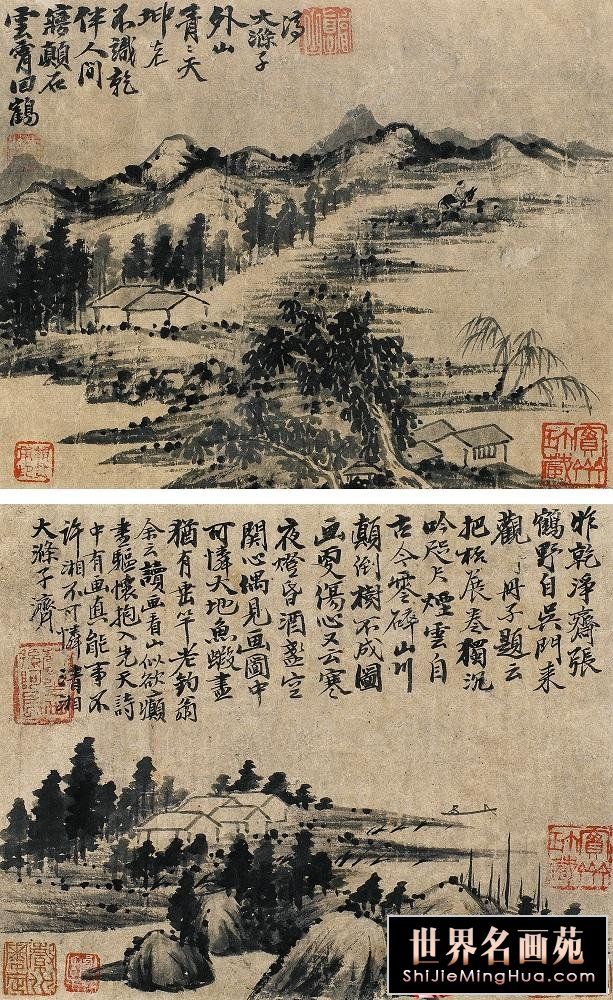 雲霄回鶴
寤顛石
伴人間
不識乾
坤老
青〻天
外山
大滌子
濟
昨乾淨齋張
鶴野自吳門來
觀予冊子題云
把杯展卷獨沉
吟咫尺煙雲自
古今零碎山川
顛倒樹不成圖
畫更傷心又云寒
夜燈昏酒盞空
關心偶見画圖中
可憐大地魚蝦盡
猶有垂竿老釣翁
余云讀画看山似欲癲
盡驅懷抱入先天詩
中有画真能事不
許湘不可憐 清湘
大滌子濟
世界名画苑
SHIJIEMINGHUA.COM